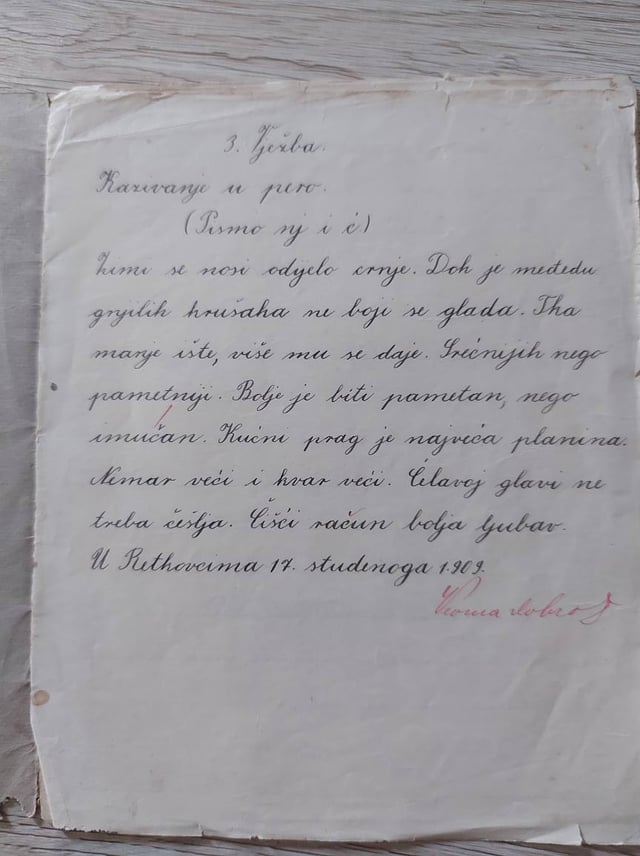 3. Vježba.
Kazivanje u pero.
(Pismo nj i ć)
Zimi se nosi odijelo crnje. Dok je međedu
gnjilih krušaka ne boji se glada. Tka
manje ište, više mu se daje. Srećnijih nego
pametniji. Bolje je biti pametan, nego
imučan. Kućni prag je najveća planina.
Nemar veći i kvar veći. Ćelavoj glavi ne
treba češlja. Čišći račun bolja ljubav.
U Retkovcima 17. studenoga 1909.
Veoma dobro